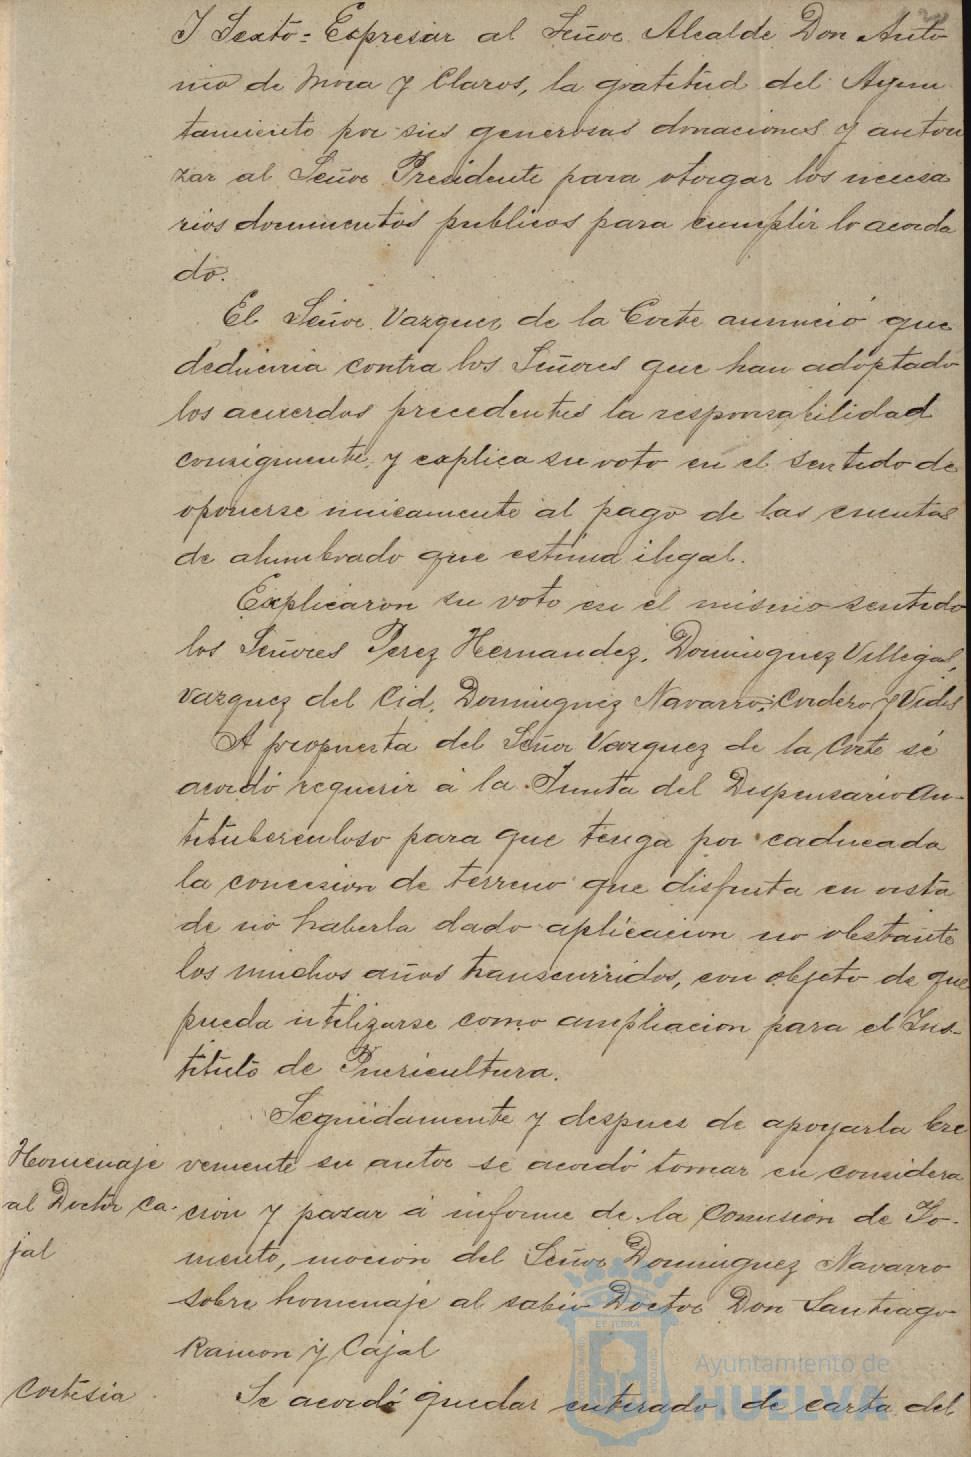 Y Sexto = Expresar al Señor Alcalde Don Anto
nio de Mora y Claros, la gratitud del Ayun
tamiento por sus generosas donaciones y autori
zar al Señor Presidente para otorgar los necesa
rios documentos publicos para cumplir lo acorda
do.
El Señor Vazquez de la Corte anunció que
deduciria contra los Señores que han adoptado
los acuerdos precedentes la responsabilidad
consiguiente, y explica su voto en el sentido de
oponerse unicamente al pago de las cuentas
de alumbrado que estima ilegal.
Explicaron su voto en el mismo sentido
los Señores Perez Hernandez, Dominguez Villegas,
Vazquez del Cid, Dominguez Navarro, Cordero y Vides
A propuesta del Señor Vazquez de la Corte se
acordó requerir á la Junta del Dispensario An-
tituberculoso para que tenga por caducada
la concesion de terreno que disfruta en vista
de no haberla dado aplicacion no obstante
los muchos años transcurridos, con objeto de que
pueda utilizarse como ampliacion para el Ins-
tituto de Puericultura.
Seguidamente y despues de apoyarla bre
Homenaje
al Doctor Ca-
jal
vemente su autor se acordó tomar en considera
cion y pasar á informe de la Comision de Fo-
mento, mocion del Señor Dominguez Navarro
sobre homenaje al sabio Doctor Don Santiago
Ramon y Cajal
Cortesia
Se acordó quedar enterado de carta del
ET TERRA
Ayuntamiento de
HUELVA